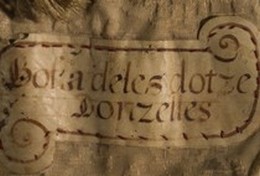 Bossa deles dotze
Donzelles